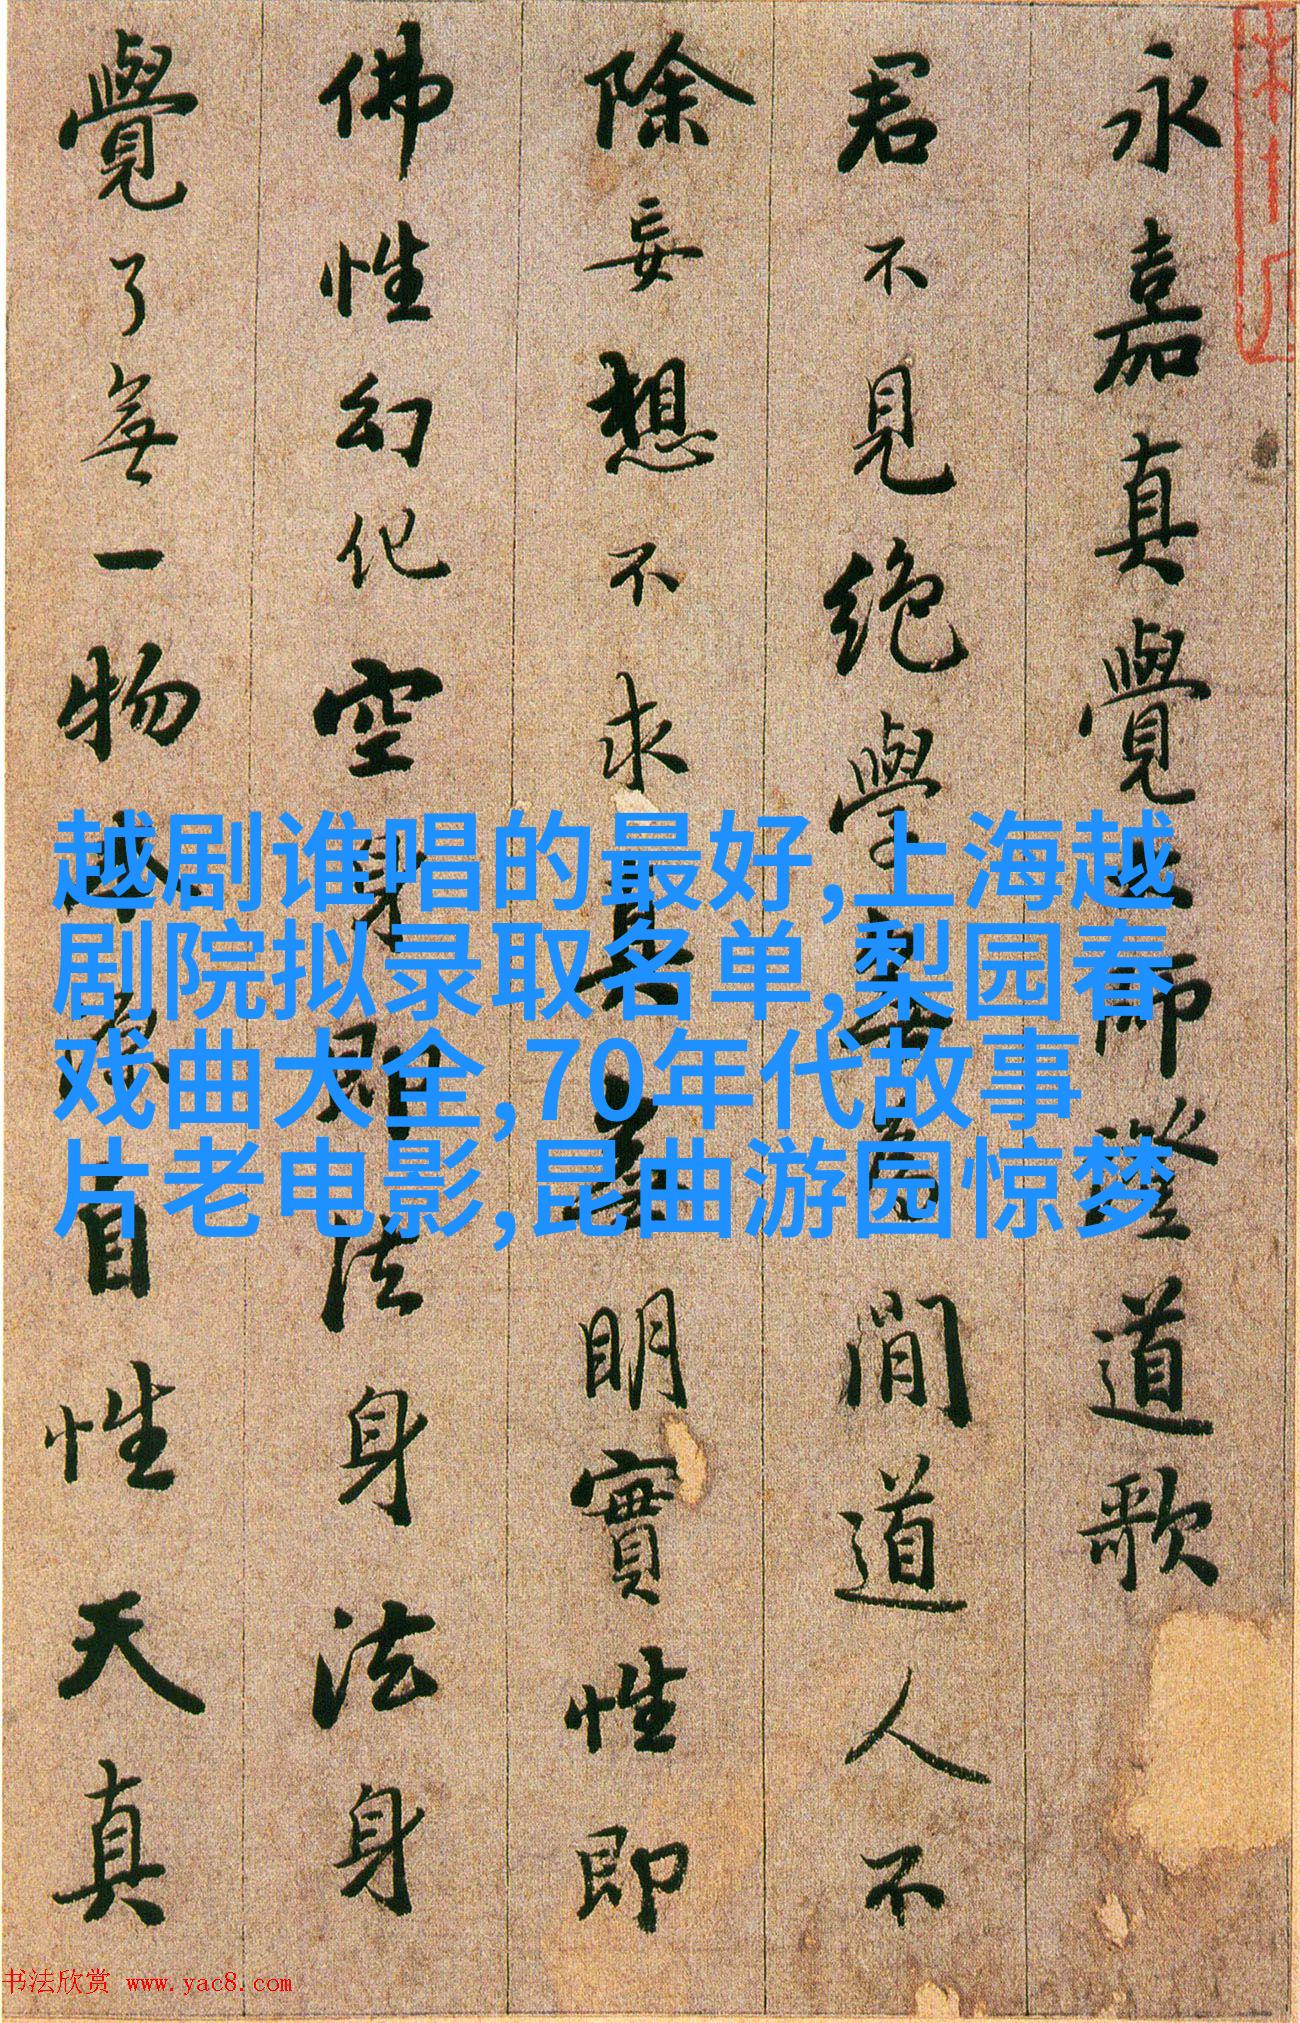 永嘉真覺師證道歌
君不見絶學閒道人不
除妄想不求真明實性即
佛性幻化空身即法身法身
覺了無一物自性天真
越剧谁唱的最好,上海越
剧院拟录取名单,梨园春
戏曲大全,70年代故事
片老电影,昆曲游园惊梦
书法欣赏 www.yac8.com